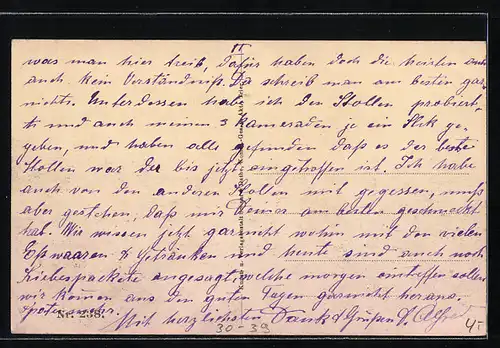 II
was man hier treib, dafür haben doch die meisten auch
auch kein Verständniß. Da schreib man am besten gar
nichts. Unterdessen habe ich den Stollen probiert
und auch meinen 3 Kameraden je ein Stück ge-
geben, und haben alle gefunden daß es der beste
Stollen war der bis jetzt eingetroffen ist. Ich habe
auch von den anderen Stollen mit gegessen, muß
aber gestehen, daß mir Deiner am besten geschmeckt
hat. Wir wissen jetzt garnicht wohin mit den vielen
Eßwaaren & Getränken und heute sind auch noch
Liebespackete angesagt, welche morgen eintreffen sollen
wir kommen aus den guten Tagen garnicht heraus.
Nr. 238.
Mit herzlichsten Dank & Grüßen Alfred
30-39
4,-